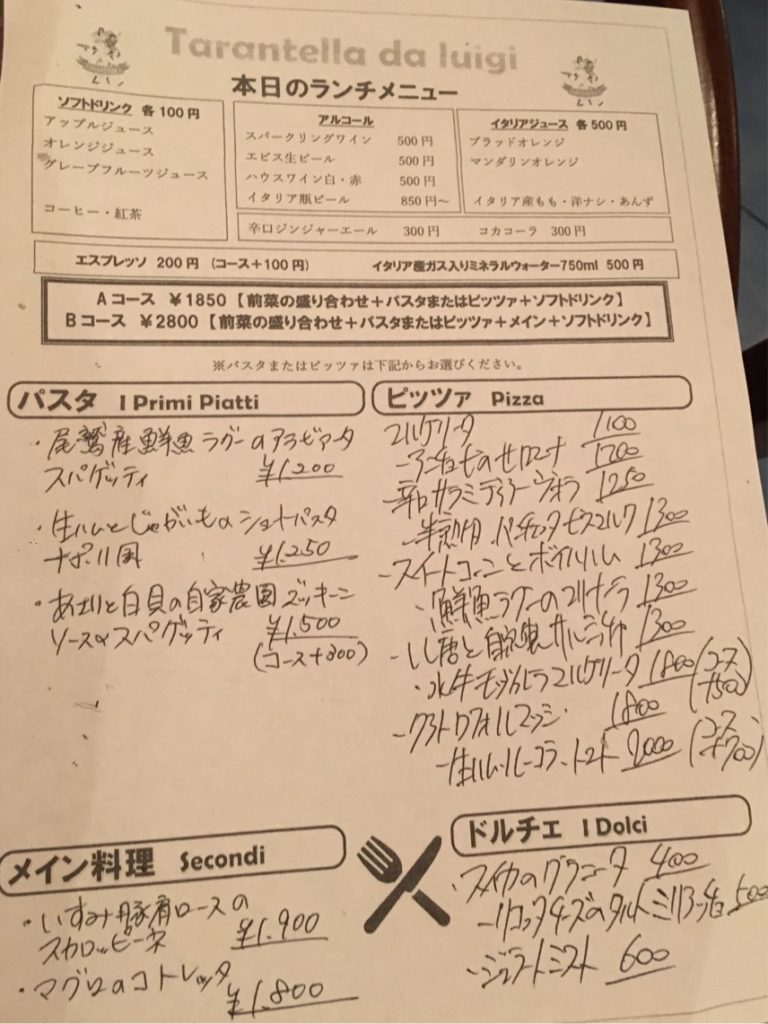 Tarantella da luigi
本日のランチメニュー
ソフトドリンク 各100円
アップルジュース
オレンジジュース
グレープフルーツジュース
コーヒー・紅茶
アルコール
スパークリングワイン 500円
エビス生ビール 500円
ハウスワイン白・赤 500円
イタリア瓶ビール 850円～
イタリアジュース 各500円
ブラッドオレンジ
マンダリンオレンジ
イタリア産もも・洋ナシ・あんず
辛口ジンジャーエール 300円 コカコーラ 300円
エスプレッソ 200円 (コース+100円) イタリア産ガス入りミネラルウォーター750ml 500円
Aコース ¥1850【前菜の盛り合わせ+パスタまたはピッツァ+ソフトドリンク】
Bコース ¥2800【前菜の盛り合わせ+パスタまたはピッツァ+メイン+ソフトドリンク】
※パスタまたはピッツァは下記からお選びください。
パスタ I Primi Piatti
・尾鷲産鮮魚ラグーのアラビアータ
スパゲッティ ¥1.200
・生ハムとじゃがいものショートパスタ
ナポリ風 ¥1.250
・あさりと白貝の自家農園ズッキーニ
ソースのスパゲッティ ¥1.500
(コース+300)
ピッツァ Pizza
マルゲリータ 1100
1200
辛口サラミ 1250
1300
-スイートコーンとボイルハム 1300
・鮮魚ラグーのマリナーラ 1300
・しし唐と自家製サルシッチャ 1300
・水牛モッツァレラマルゲリータ 1800 (コース+750)
-クアトロフォルマッジ 1800
-生ハム・ルーコラ・トマト 2000 (コース+700)
メイン料理 Secondi
・いすみ豚肩ロースの
スカロッピーネ ¥1.900
・マグロのコトレッタ
¥1.800
ドルチェ I Dolci
・スイカのグラニータ 400
-リコッタチーズのタルト 500
・ジェラートミスト 600